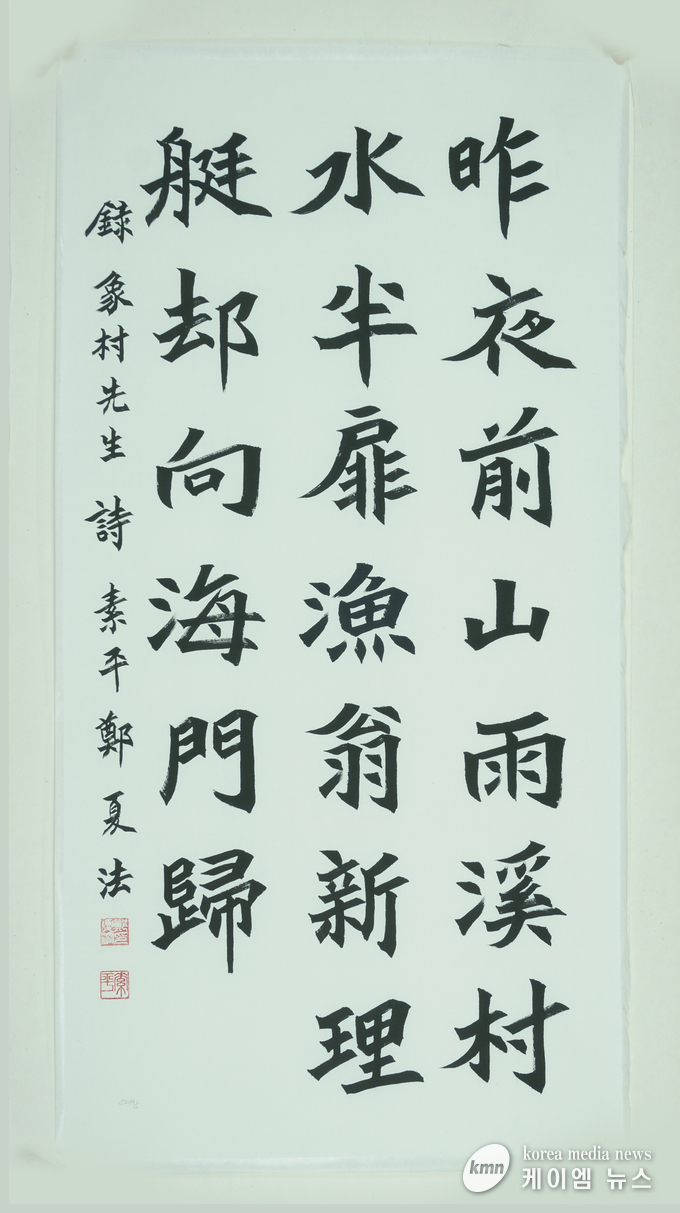 昨夜前山雨溪村
水半扉漁翁新理
艇却向海門歸
錄象村先生詩素平鄭夏法
kmn
korea media news
케이엠 뉴스